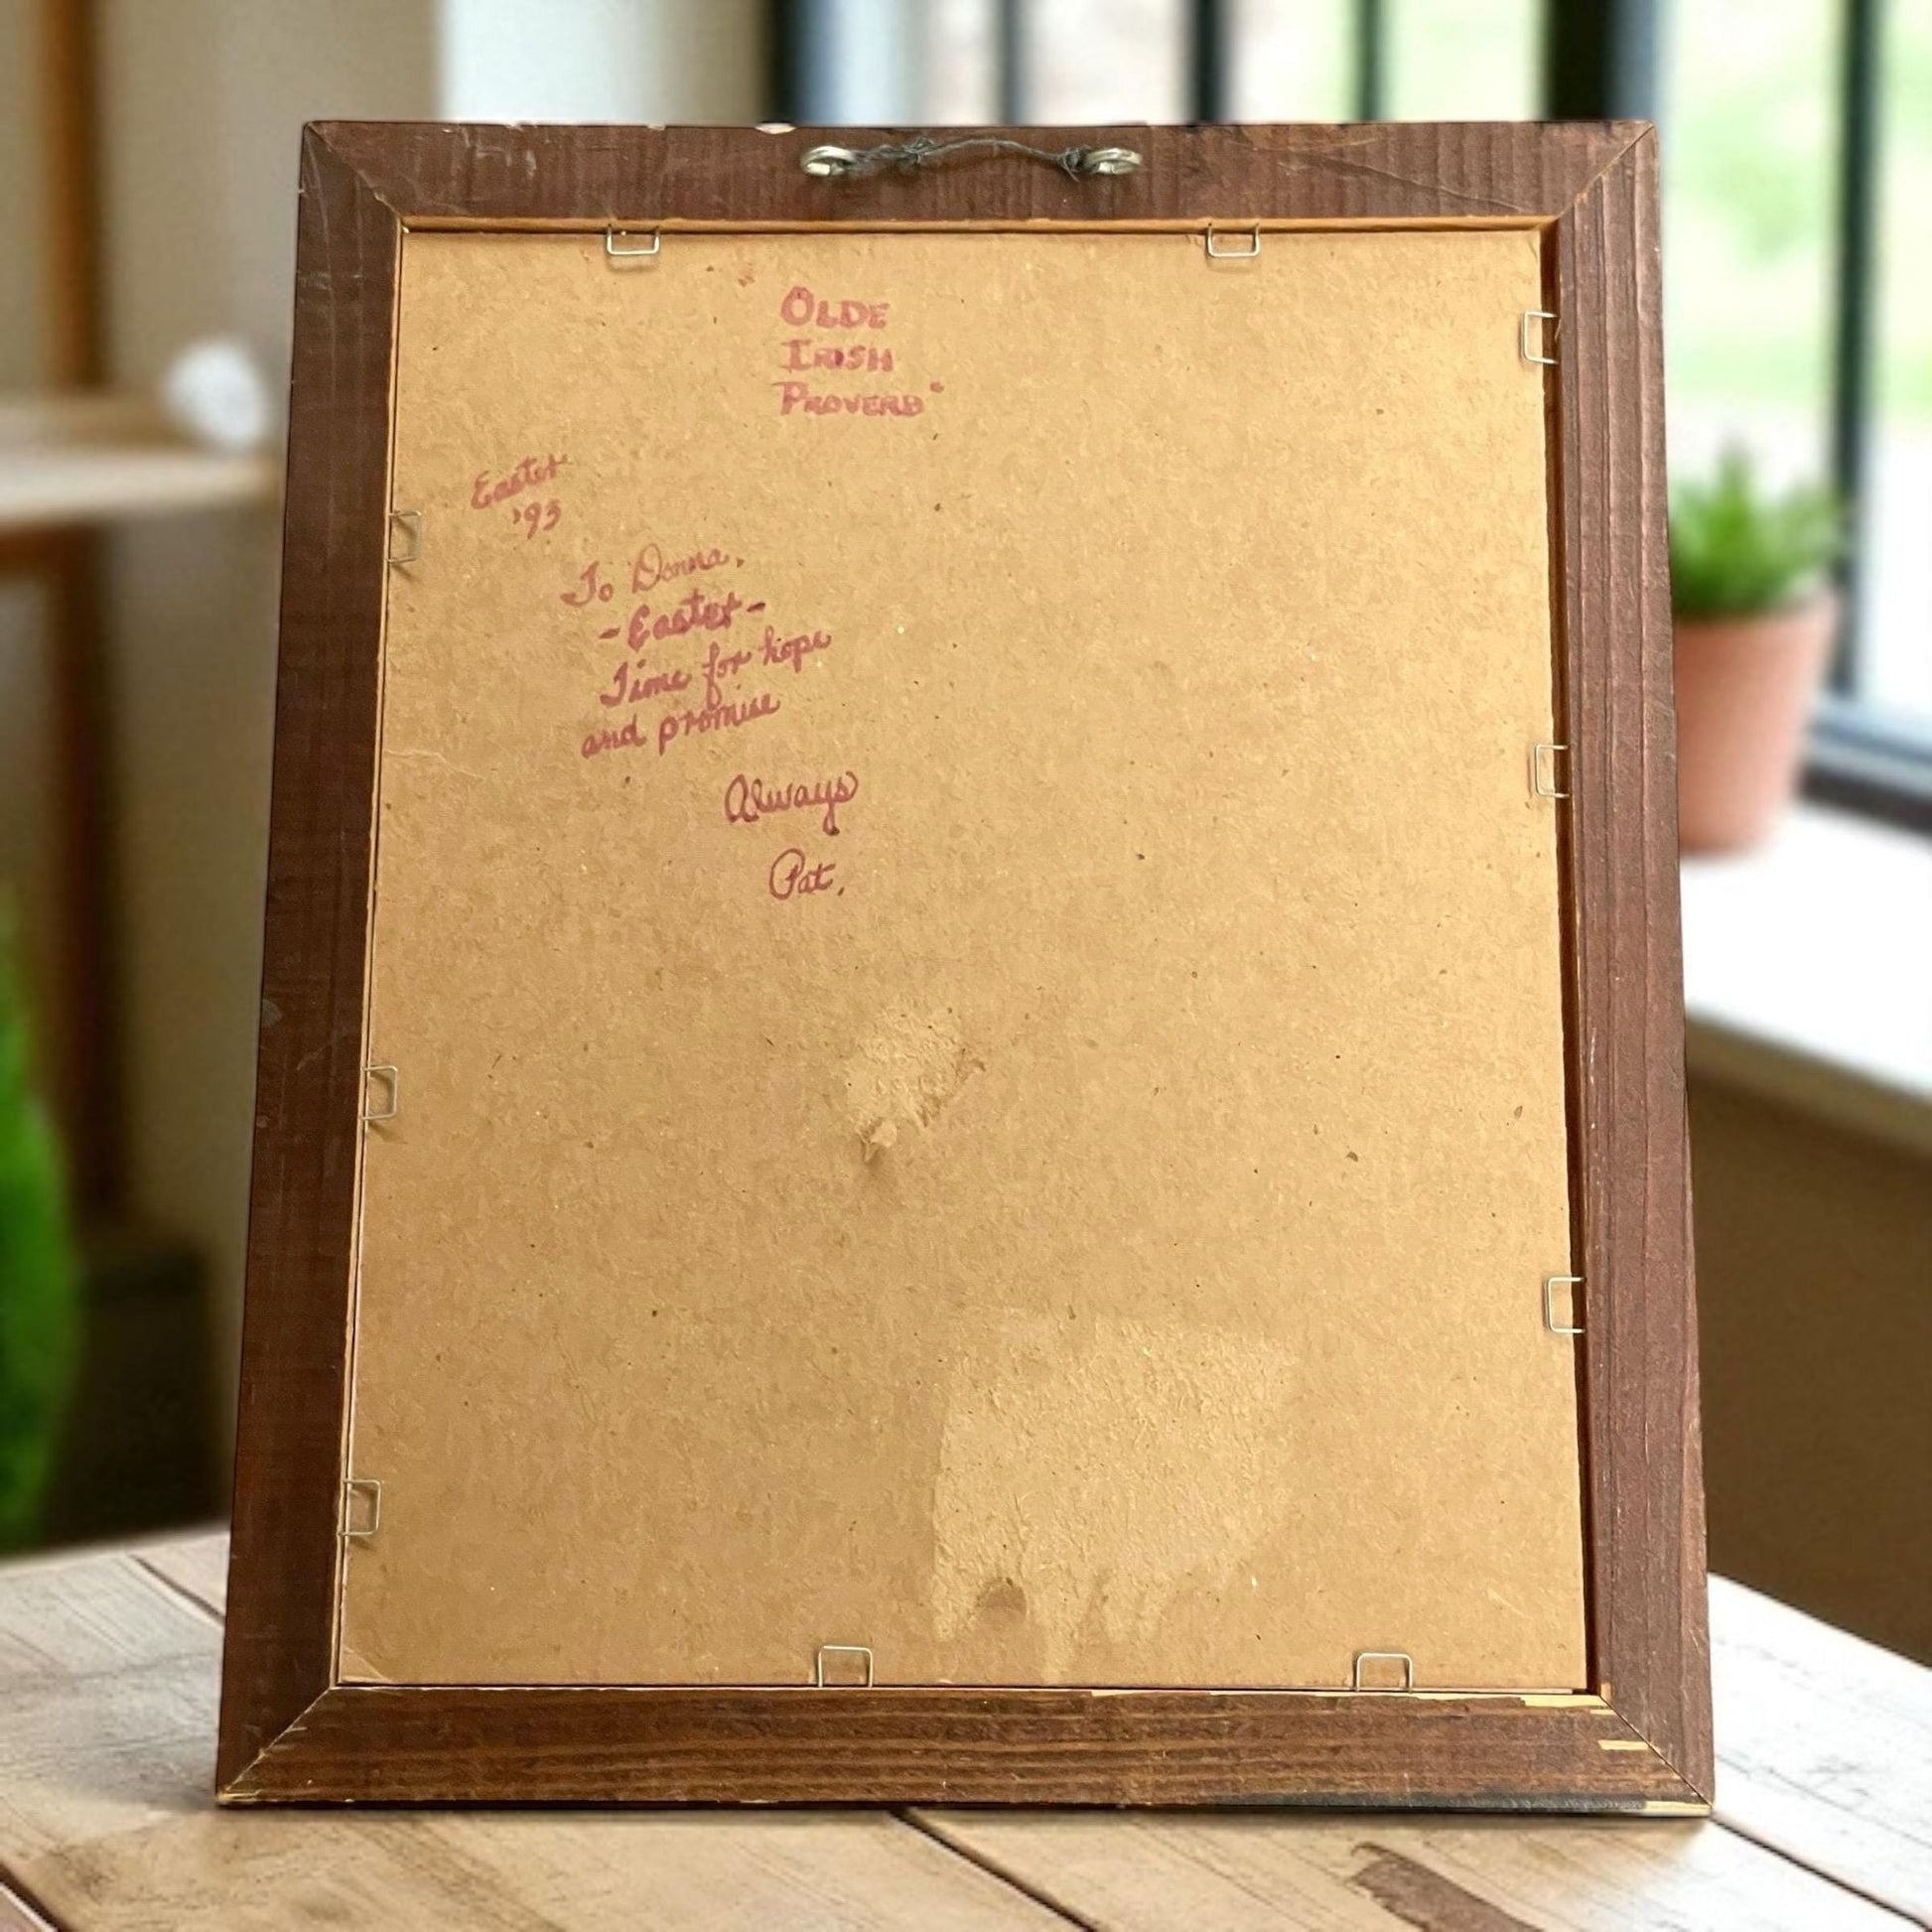 OLDE
IRISH
PROVERB"
Easter
'93
To Donna,
-Easter-
Time for hope
and promise
Always
Pat.